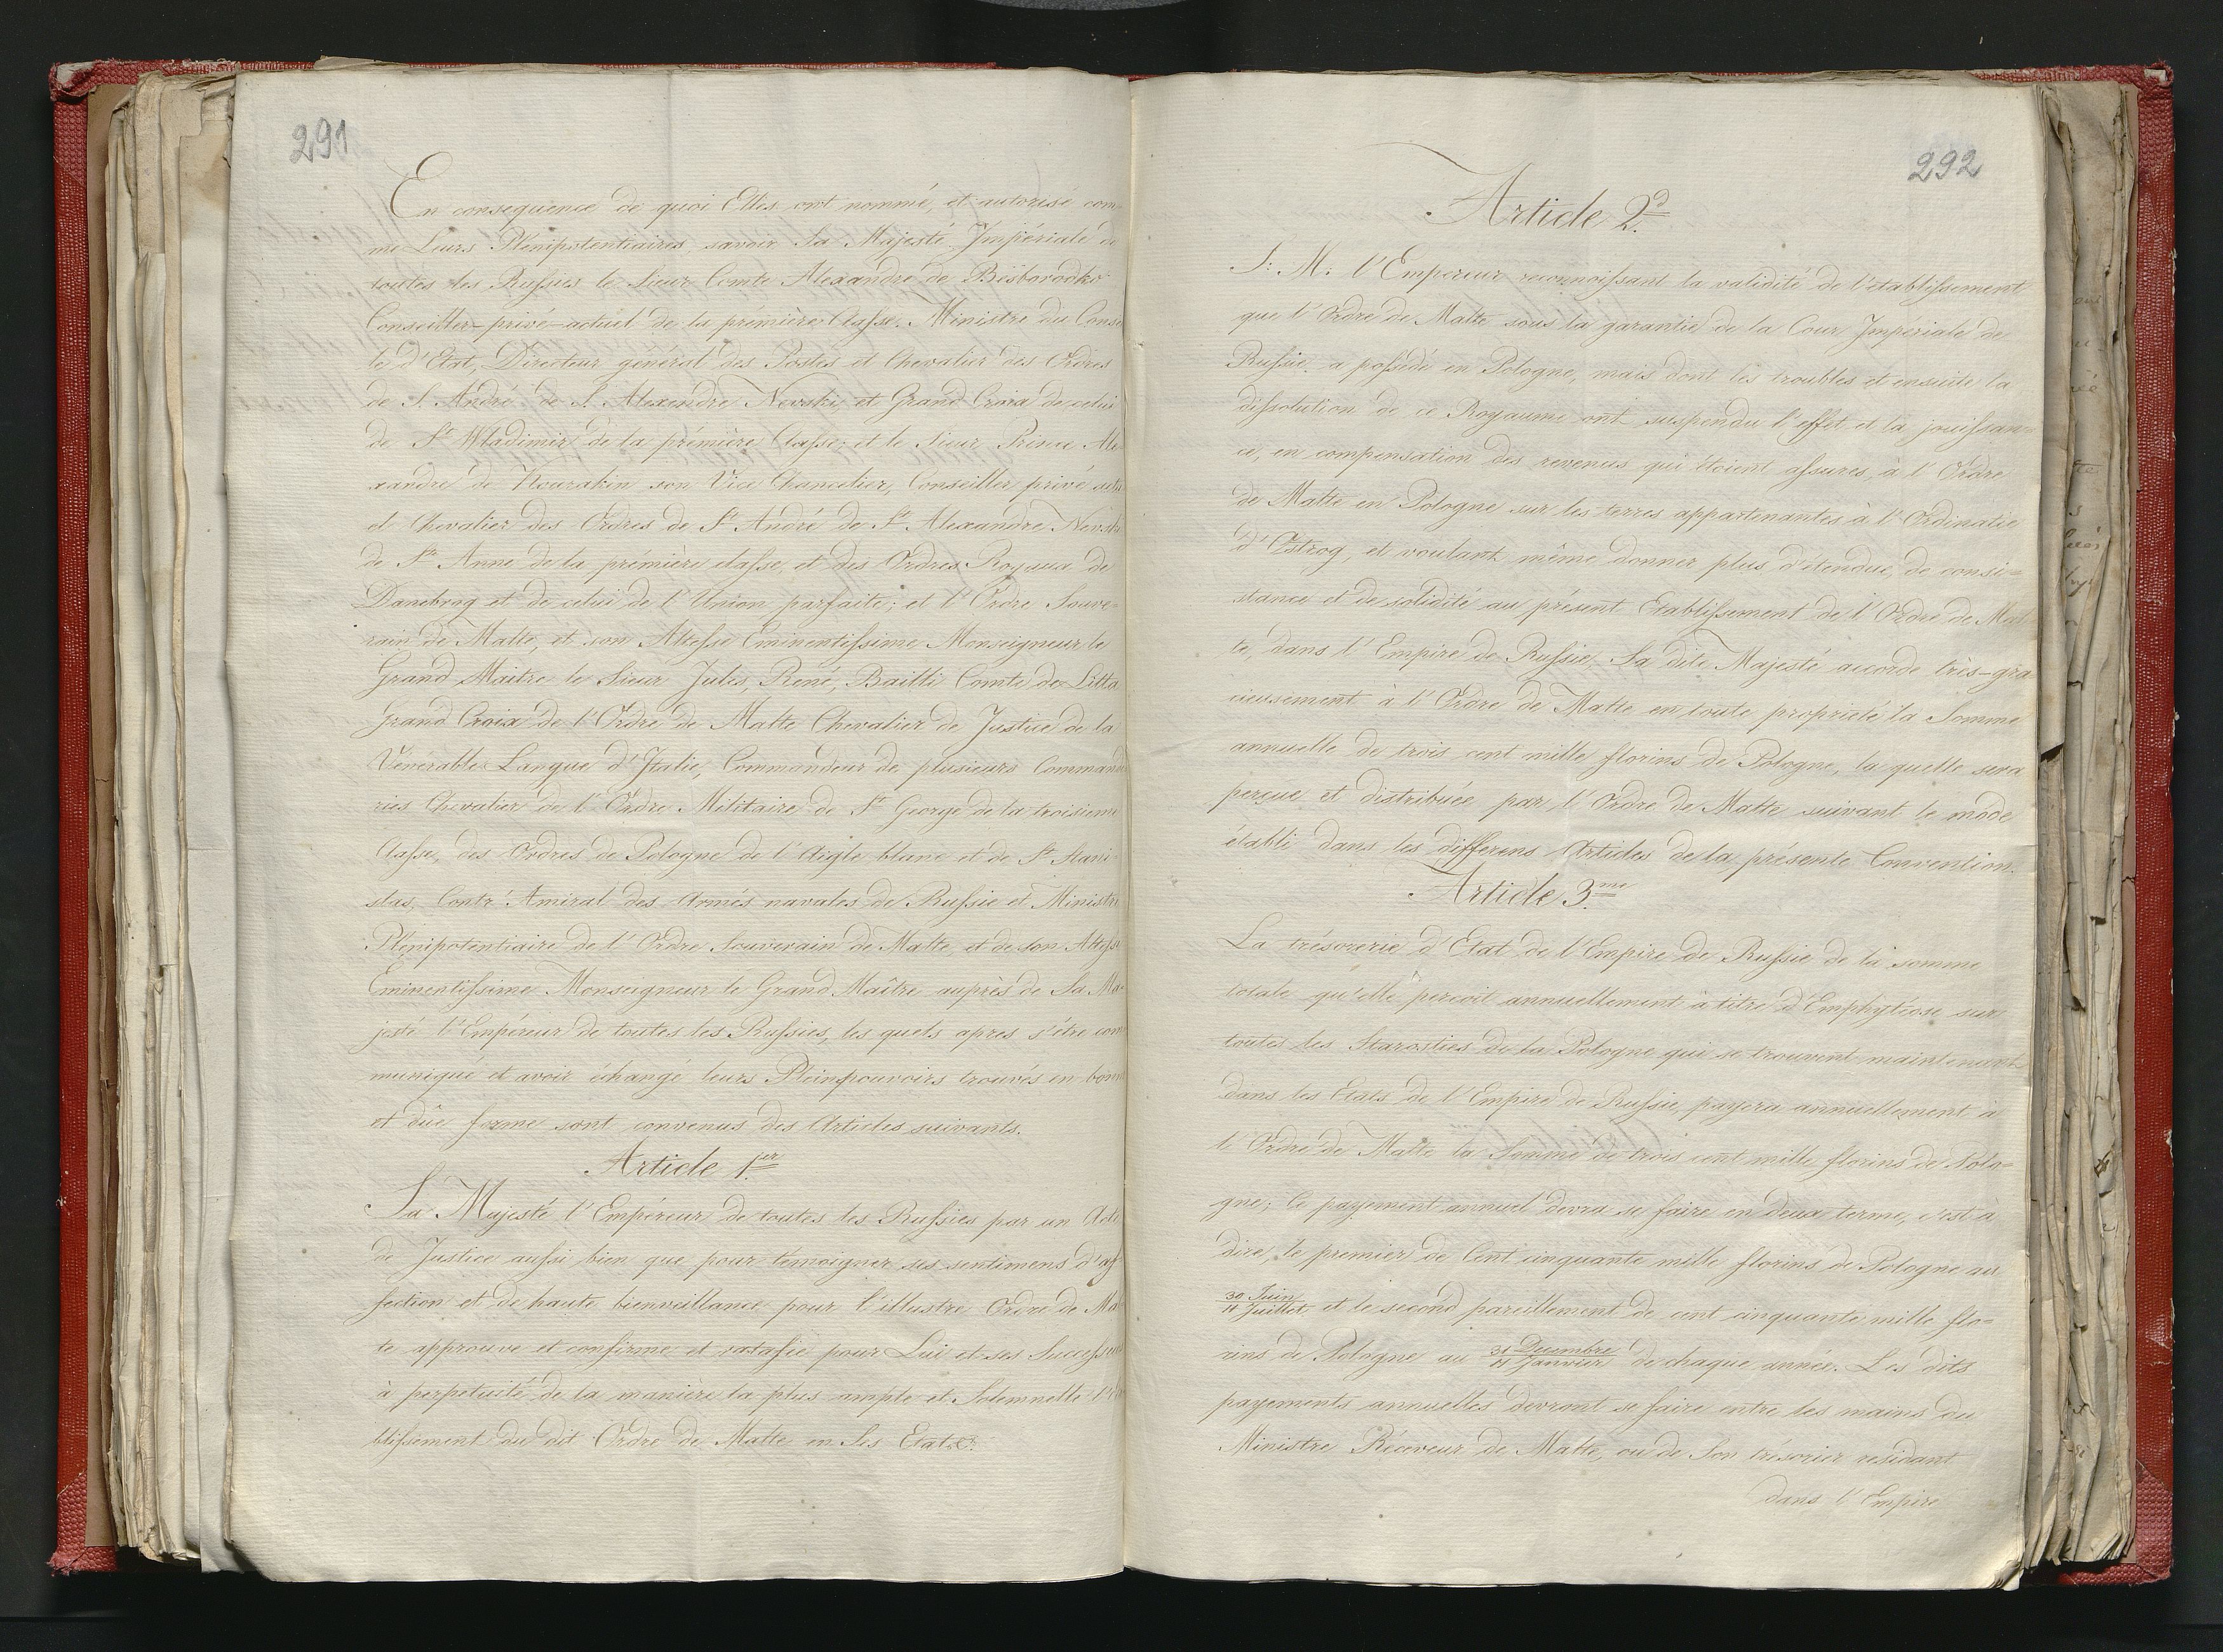 291
En consequence de quoi Elles ont nommé, et autorisé com=
me Leurs Plénipotentiaires, savoir Sa Majesté Impériale de
toutes les Russies le Sieur Comte Alexandre de Bésborodko
Conseiller-privé-actuel de la prémière Classe, Ministre du Conse
le d'Etat, Directeur général des Postes et Chevalier des Ordres
de S. André de S. Alexendre Nevski, et Grand Croix de celui
de St Wladimir de la prémière Classe; et le Sieur Prince Ale
xandre de Kourakin son Vice Chancelier, Conseiller privé actu
et Chevalier des Ordres de St André de St Alexandre Nevski
de Ste Anne de la prémière classe, et des Ordres Royaux de
Danebrog et de celui de l'Union parfaite; et l'Ordre Souve-
rain de Malte, et son Altesse Eminentissime Monseigneur le
Grand Maitre le Sieur Jules, René, Bailli Comte de Litta
Grand Croix de l'Ordre de Malte Chevalier de Justice de la
Vénérable Langue d'Italie, Commandeur de plusieurs Comman
ries Chevalier de l'Ordre Militaire de St George de la troisieme
Classe, des Ordres de Pologne de l'Aigle blanc et de St Stani-
slas, Contr'Amiral des Armés navales de Russie et Ministre
Plénipotentiaire de l'Ordre Souverain de Malte, et de son Altesse
Eminentissime Monseigneur le Grand Maître auprès de Sa Ma-
jesté l'Empéreur de toutes les Russies, les quels apres s'étre com
muniqué et avoir échangé leurs Pleinpouvoirs trouvés en bonne
et düe forme sont convenus des Articles suivants.
Article 1er
Sa Majesté l'Empéreur de toutes les Russies par un Acte
de Justice aussi bien que pour témoigner ses sentimens d'af
fection et de haute bienveillance pour l'illustre Ordre de Mal
te approuve et confirme et ratafie pour Lui et ses Successeurs
à perpetuité de la manière la plus ample et Solemnelle l'éta
blissement du dit Ordre de Malte en Ses Etats.
292
Article 2d
S: M: l'Empereur reconnoissant la validité de l'établissement
que l'Ordre de Malte sous la garantie de la Cour Impériale de
Russie a possédé en Pologne, mais dont les troubles et ensuite la
dissolution de ce Royaume ont suspendu l'effet et la jouissan=
ce, en compensation des revenus qui étoient assurés, à l'Ordre
de Malte en Pologne sur les terres appartenantes à l'Ordinatie
d'Ostrog, et voulant même donner plus d'étendue, de consi=
stance et de solidité au présent Etablissement de l'Ordre de Mal
te, dans l'Empire de Russie, Sa dite Majesté accorde très-gra
cieusement à l'Ordre de Malte en toute proprieté la Somme
annuelle de trois cent mille florins de Pologne, la quelle sera
perçue et distribuée par l'Ordre de Malte suivant le mode
établi dans les differens Articles de la présente Convention.
Article 3me
La trésorerie d'Etat de l'Empire de Russie de la somme
totale qu'elle perçoit annuellement à titre d'Emphytéose sur
toutes les Starosties de la Pologne qui se trouvent maintenant
dans les Etats de l'Empire de Russie, payera annuellement à
l'Ordre de Malte la Somme de trois cent mille florins de Polo=
gne; Ce payement annuel devra se faire en deux terme, c'est à
dire, le premier de Cent cinquante mille florins de Pologne au
30 Juin / 11 Juillet et le second pareillement de cent cinquante mille flo=
rins de Pologne au 31 Decembre / 11 Janvier de chaque année. Les dits
payements annuelles devront se faire entre les mains du
Ministre Réceveur de Malte, ou de Son trésorier residant
dans l'Empire